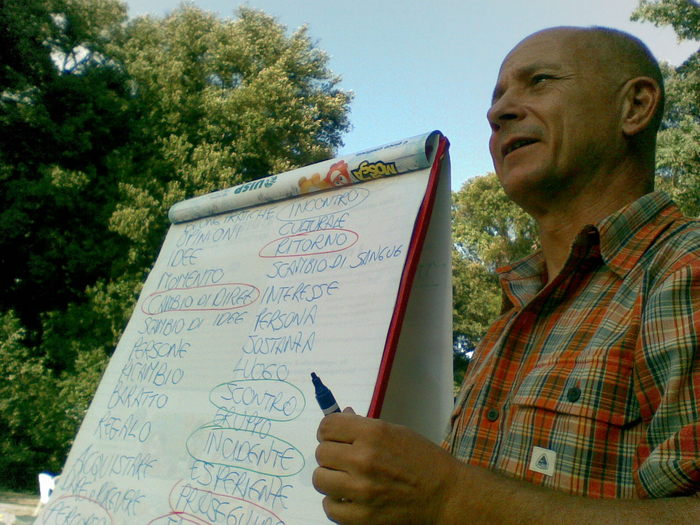 UISP
PRATICHE
OPINIONI
IDEE
MOMENTO
CAMBIO DI DIREZ
SCAMBIO DI IDEE
PERSONE
RICAMBIO
BARATTO
REGALO
ACQUISTARE
INCONTRO
CULTURALE
RITORNO
SCAMBIO DI SANGUE
INTERESSE
PERSONA
SOSTANZA
LUOGO
SCONTRO
GRUPPO
INCIDENTE
ESPERIENTE